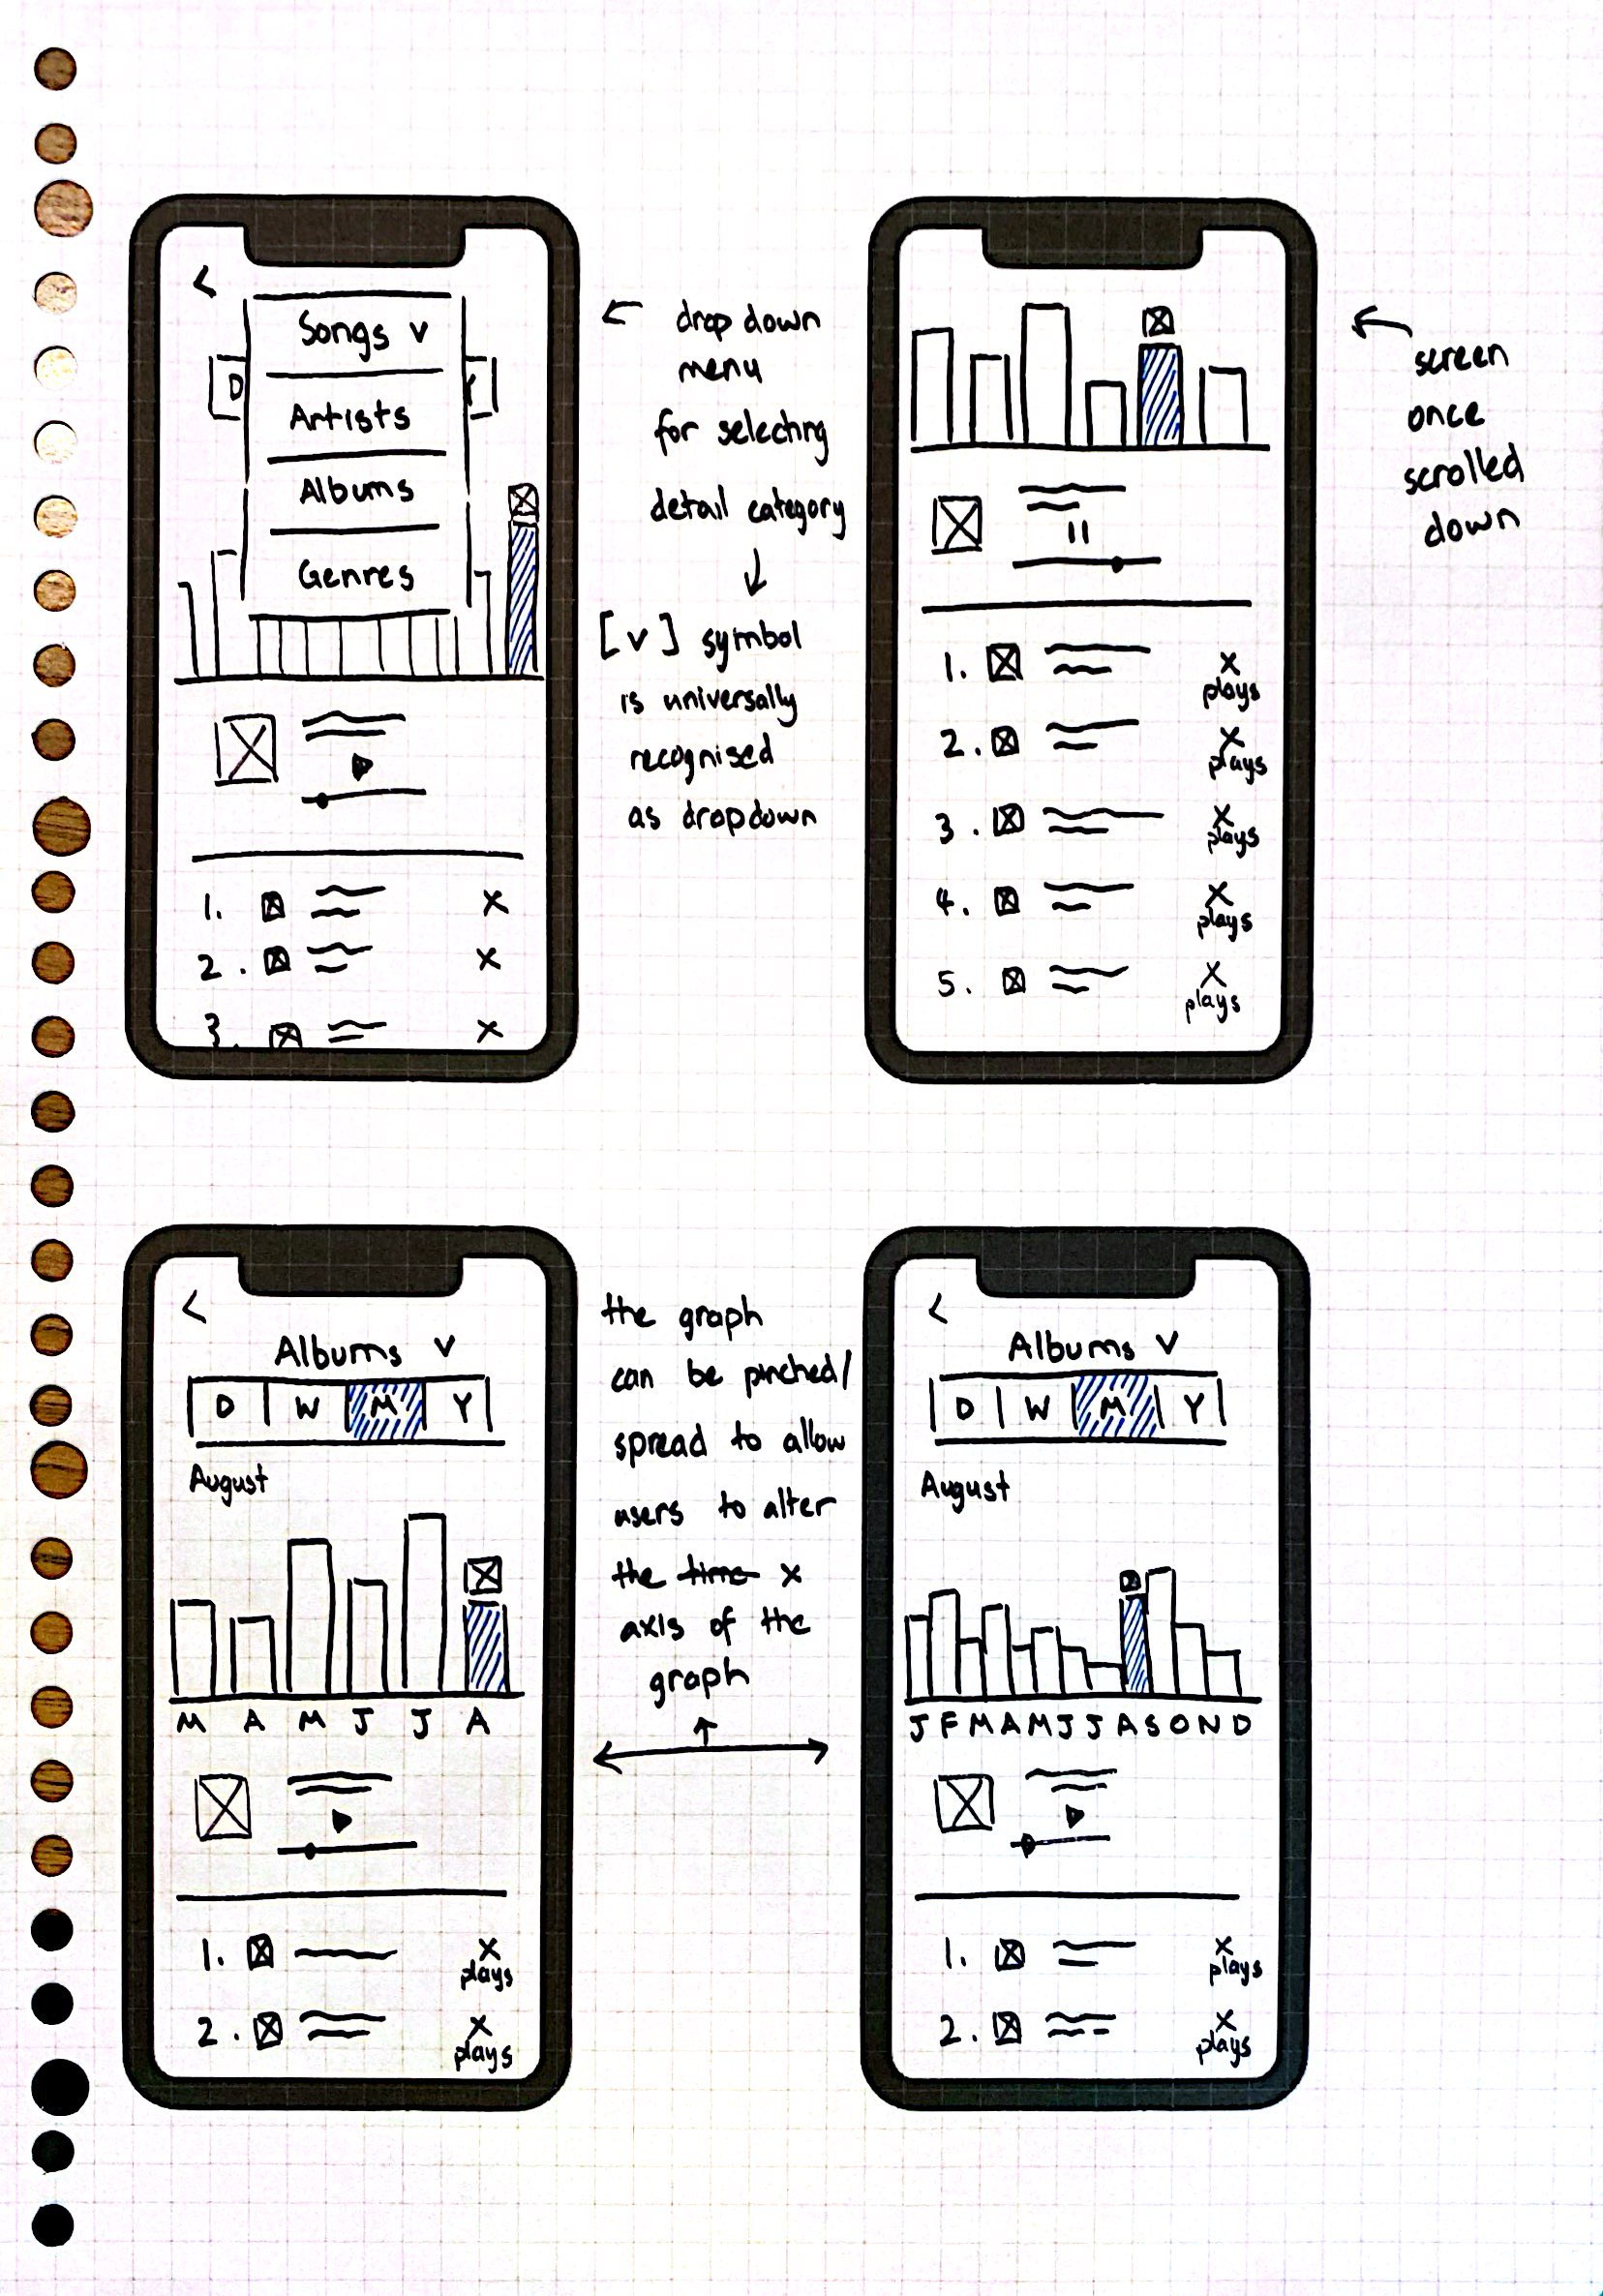 <
Songs v
D
Artists
Albums
Genres
1. x
2. x
3. x
← drop down
menu
for selecting
detail category
↓
[v] symbol
is universally
recognised
as dropdown
1. x
plays
2. x
plays
3. x
plays
4. x
plays
5. x
plays
← screen
once
scrolled
down
<
Albums v
D W M Y
August
M A M J J A
1. x
plays
2. x
plays
the graph
can be pinched/
spread to allow
users to alter
the time x
axis of the
graph
↑
<
Albums v
D W M Y
August
J F M A M J J A S O N D
1. x
plays
2. x
plays